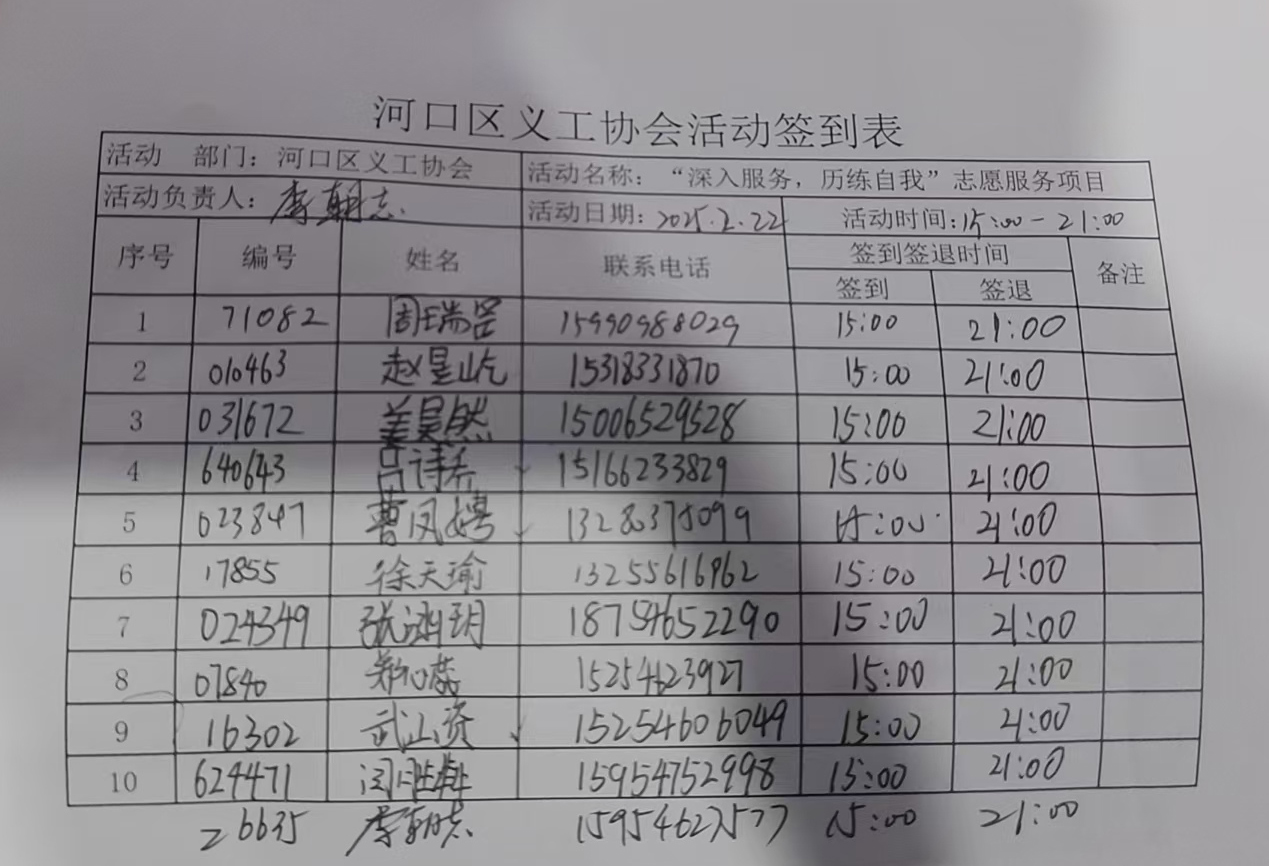 河口区义工协会活动签到表
活动 部门：河口区义工协会 活动名称：“深入服务，历练自我”志愿服务项目
活动负责人：李朝志 活动日期：2025.2.22 活动时间：15:00-21:00
序号 编号 姓名 联系电话 签到签退时间 备注
签到 签退
1 71082 周瑞 15990988029 15:00 21:00
2 010463 赵星屹 15318331870 15:00 21:00
3 031672 姜昊然 15006529528 15:00 21:00
4 640643 吕诗 15166233829 15:00 21:00
5 023847 曹凤娉 15:00 21:00
6 17855 徐天瑜 13255616962 15:00 21:00
7 024349 张 玥 18754652290 15:00 21:00
8 07840 郑心蕊 15254623927 15:00 21:00
9 16302 武 15254606049 15:00 21:00
10 624471 闫 15954752998 15:00 21:00
26635 李朝志 15954627577 15:00 21:00